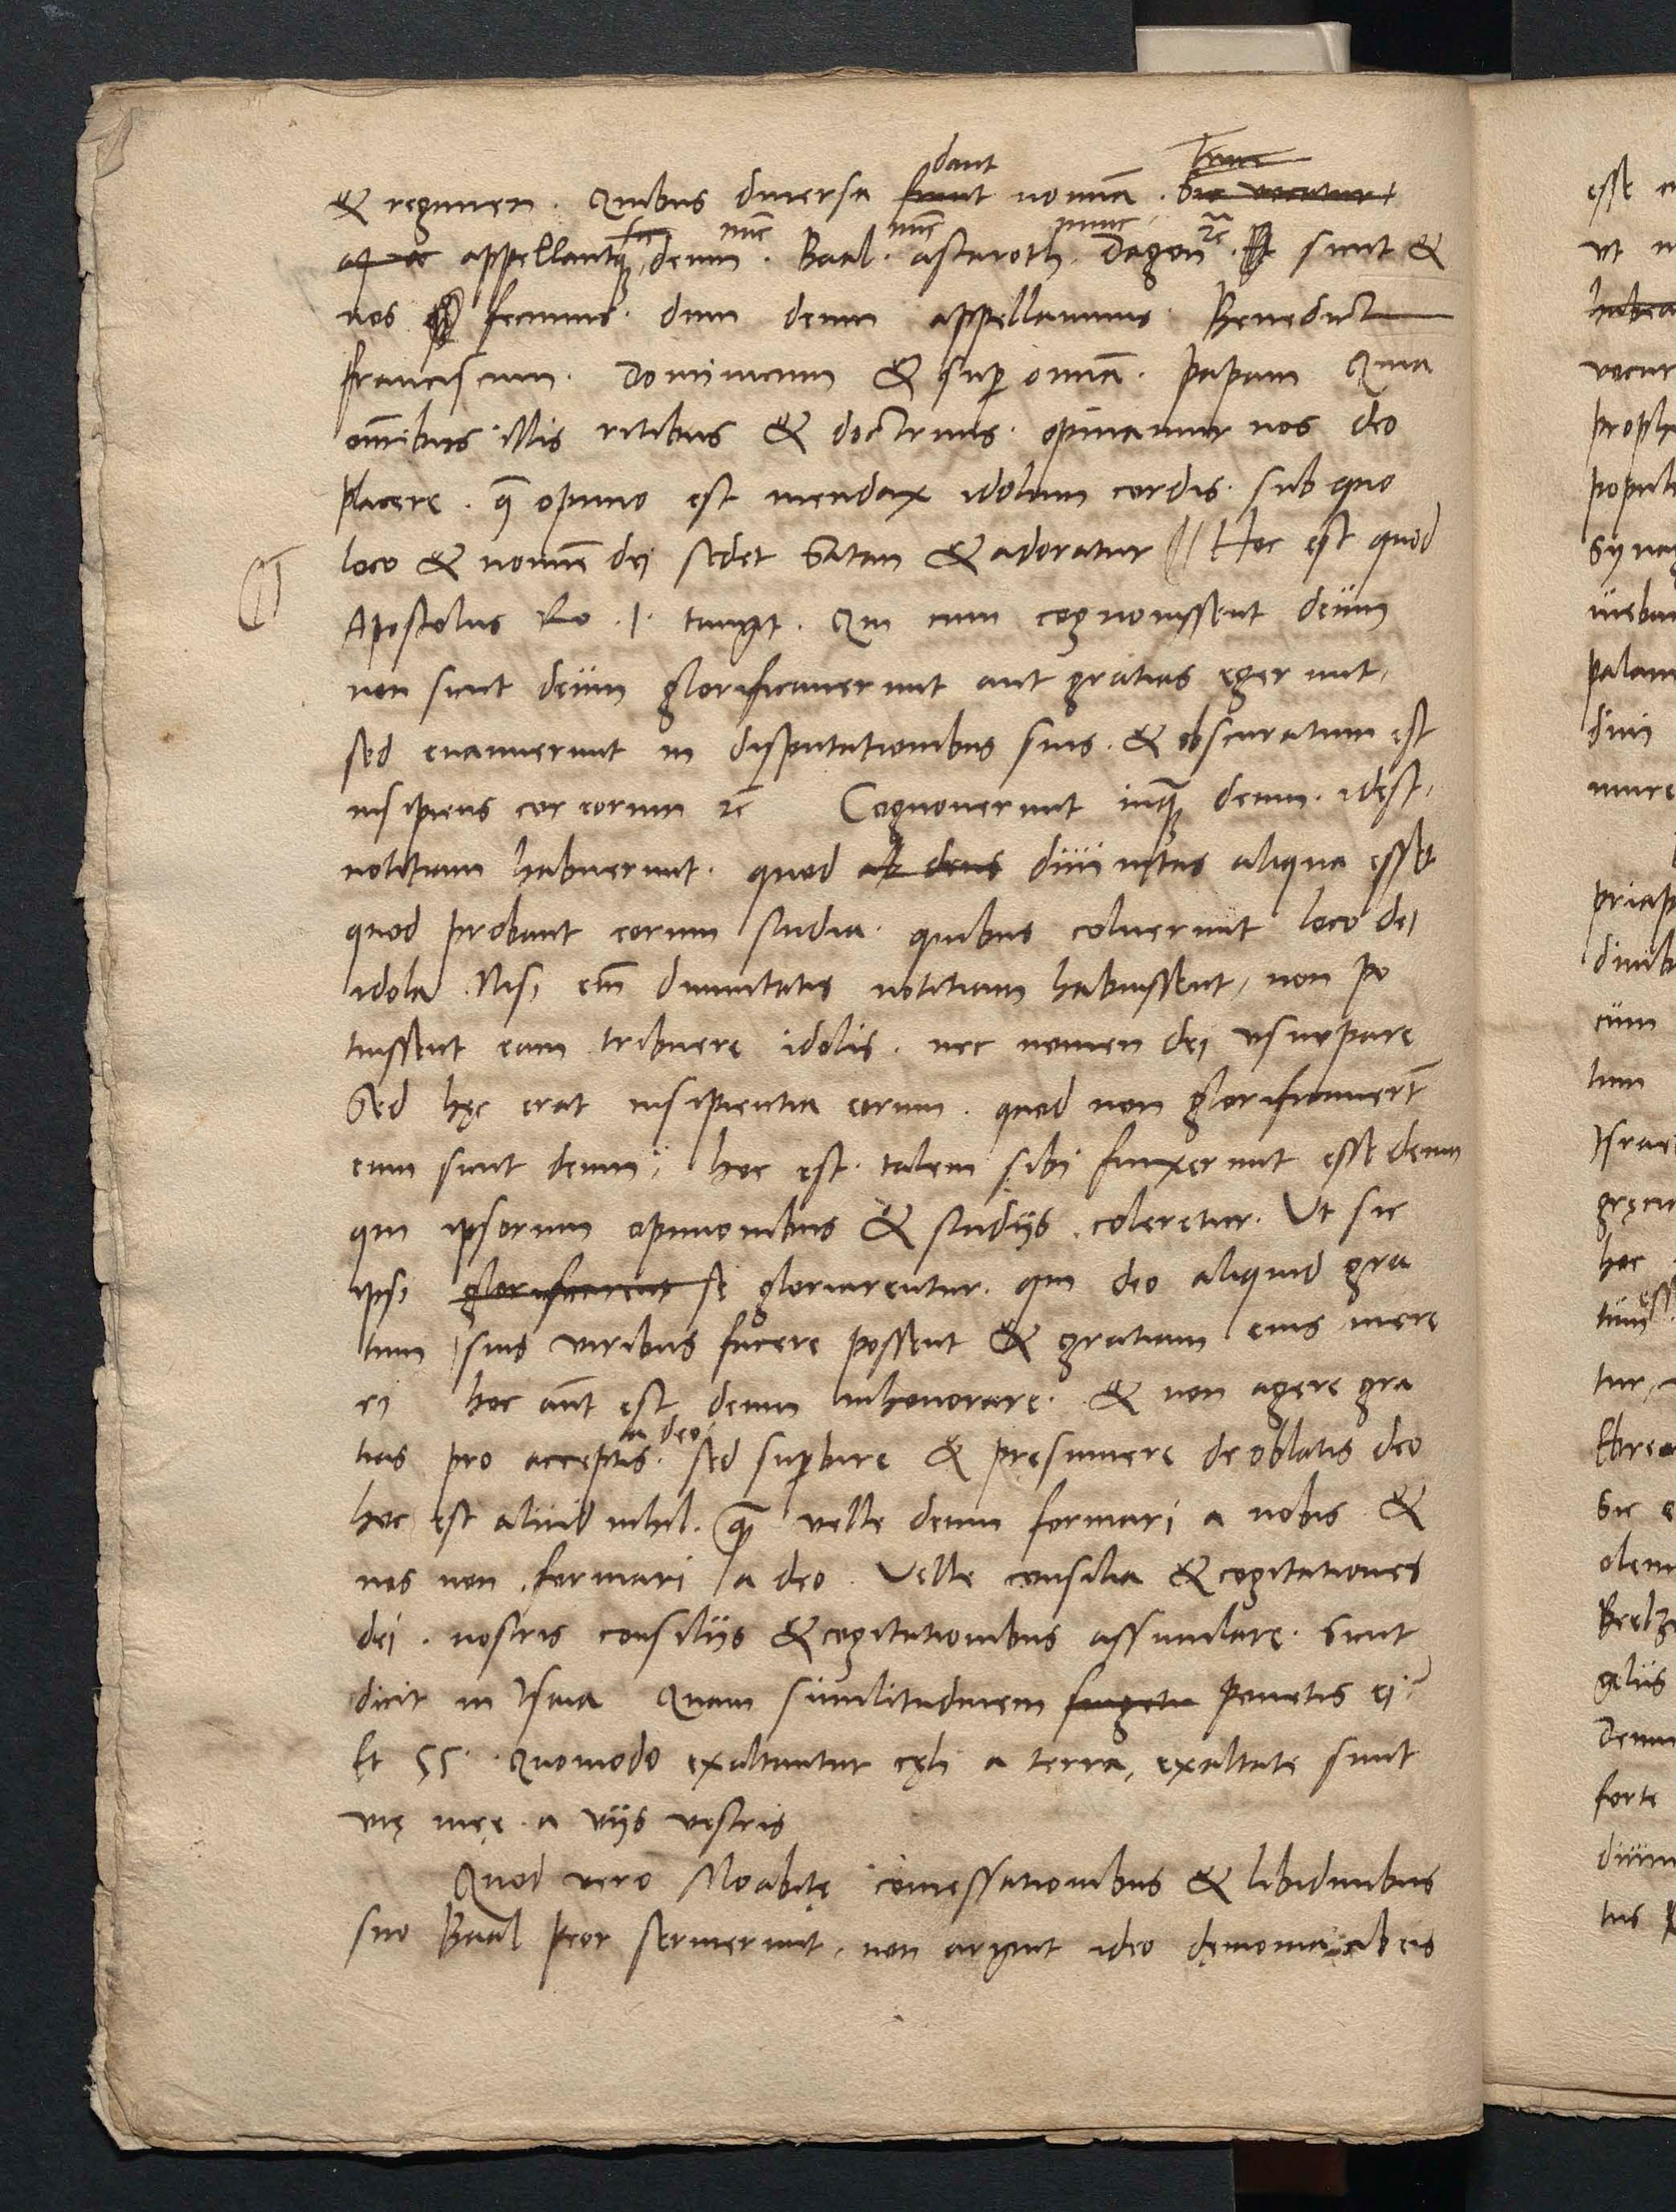 dant
& regimen. Quibus diuersa fiunt nomina. Sic vocatur
nunc nunc nunc ꝛc
appellantque deum. Baal. astaroth. Dagon. sicut &
nos fecimus. dum deum appellamus. Benedict
franciscum. Dominicum & super omnia. papam Quia
omnibus illis ritibus & doctrinis. opinamur nos deo
placere. quę opinio est mendax idolum cordis. sub quo
loco & nomine dei sedet Satan & adoratur // Hoc est quod
Apostolus Ro .1. tangit. Qui cum cognouissent deum
non sicut deum glorificauerunt aut gratias egerunt,
sed euanuerunt in disputationibus suis. & obscuratum est
insipiens cor eorum ꝛc Cognouerunt inquam deum. idest,
notitiam habuerunt. quod deus diuinitas aliqua esset
quod probant eorum studia. quibus coluerunt loco dei
idola. Nisi enim diuinitatis notitiam habuissent, non po
tuissent eam tribuere idolis. nec nomen dei vsurpare
Sed hęc erat insipientia eorum. quod non glorificauerunt
eum sicut deum, hoc est. talem sibi finxerunt esse deum
qui ipsorum opinionibus & studijs coleretur. Vt sic
ipsi glorificarent se gloriarentur. qui deo aliquid gra
tum suis viribus facere possent & gratiam eius mere
ri hoc autem est deum inhonorare. & non agere gra
a deo
tias pro acceptis. sed superbire & pręsumere de oblatis deo
hoc est aliud nihil. quam velle deum formari a nobis &
nos non formari a deo. Velle consilia & cogitationes
dei. nostris consilijs & cogitationibus assimilare. Sicut
dicit in Isaia Quam similitudinem ponetis ei?
Et 55. Quomodo exaltantur cęli a terra, exaltate sunt
vię meę a vijs vestris
Quod vero Moabitę comessationibus & libidinibus
suo Baal Peor seruierunt, non arguit ideo dęmonia ab eis